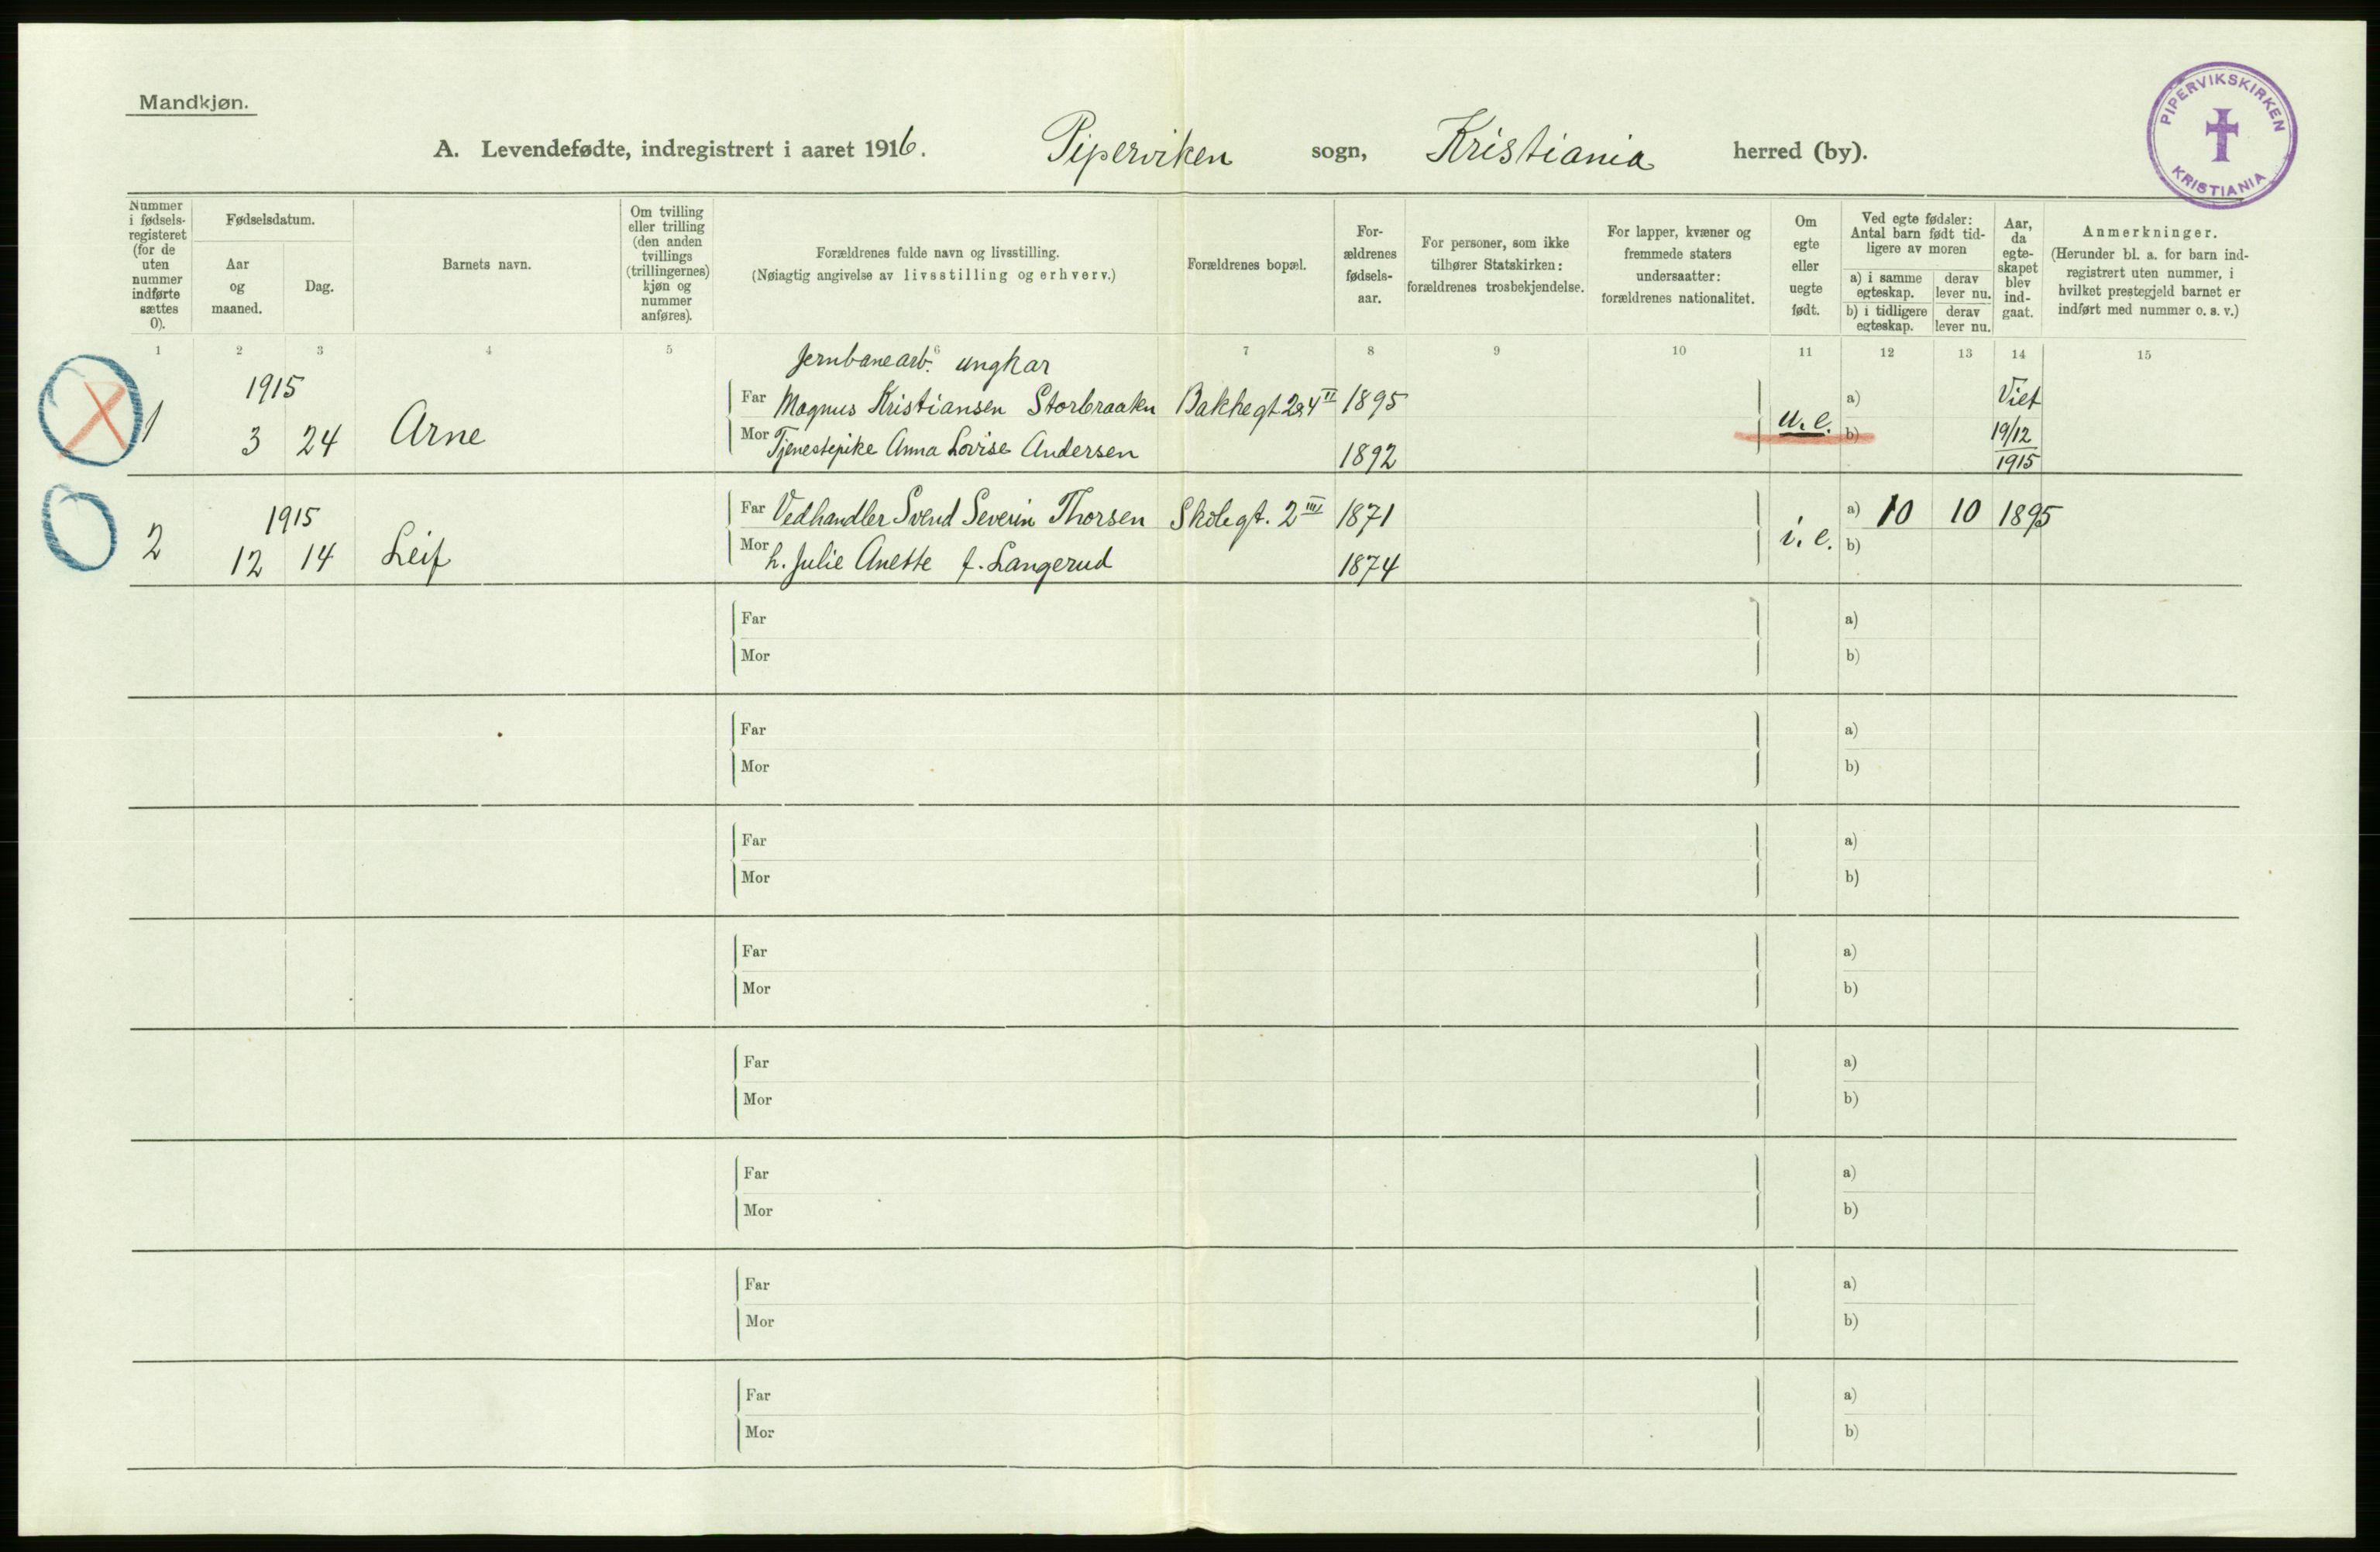 Mandkjøn.
A. Levendefødte, indregistrert i aaret 1916. Piperviken sogn, Kristiania herred (by).
PIPERVIKSKIRKEN
KRISTIANIA
Nummer i fødsels-registeret (for de uten nummer indførte sættes 0).
Fødselsdatum.
Aar og maaned.
Dag.
Barnets navn.
Om tvilling eller trilling (den anden tvillings (trillingernes) kjøn og nummer anføres).
Forældrenes fulde navn og livsstilling.
(Nøiagtig angivelse av livsstilling og erhverv.)
Forældrenes bopæl.
For-ældrenes fødsels-aar.
For personer, som ikke tilhører Statskirken: forældrenes trosbekjendelse.
For lapper, kvæner og fremmede staters undersaatter: forældrenes nationalitet.
Om egte eller uegte født.
Ved egte fødsler: Antal barn født tid-ligere av moren
a) i samme egteskap.
derav lever nu.
b) i tidligere egteskap.
derav lever nu.
Aar, da egte-skapet blev ind-gaat.
Anmerkninger.
(Herunder bl. a. for barn ind-registrert uten nummer, i hvilket prestegjeld barnet er indført med nummer o. s. v.)
1 2 3 4 5 6 7 8 9 10 11 12 13 14 15
Jernbanearb. ungkar
1915
Far Magnus Kristiansen Storbraaten Bakkegt 2 II 1895 a) Viet
1 3 24 Arne u. e. b) 19/12
Mor Tjenestepike Anna Lovise Andersen 1892 1915
1915
Far Vedhandler Svend Severin Thorsen Skolegt. 2 III 1871 a) 10 10 1895
2 12 14 Leif i. e. b)
Mor h. Julie Anette f. Langerud 1874
Far a)
Mor b)
Far a)
Mor b)
Far a)
Mor b)
Far a)
Mor b)
Far a)
Mor b)
Far a)
Mor b)
Far a)
Mor b)
Far a)
Mor b)